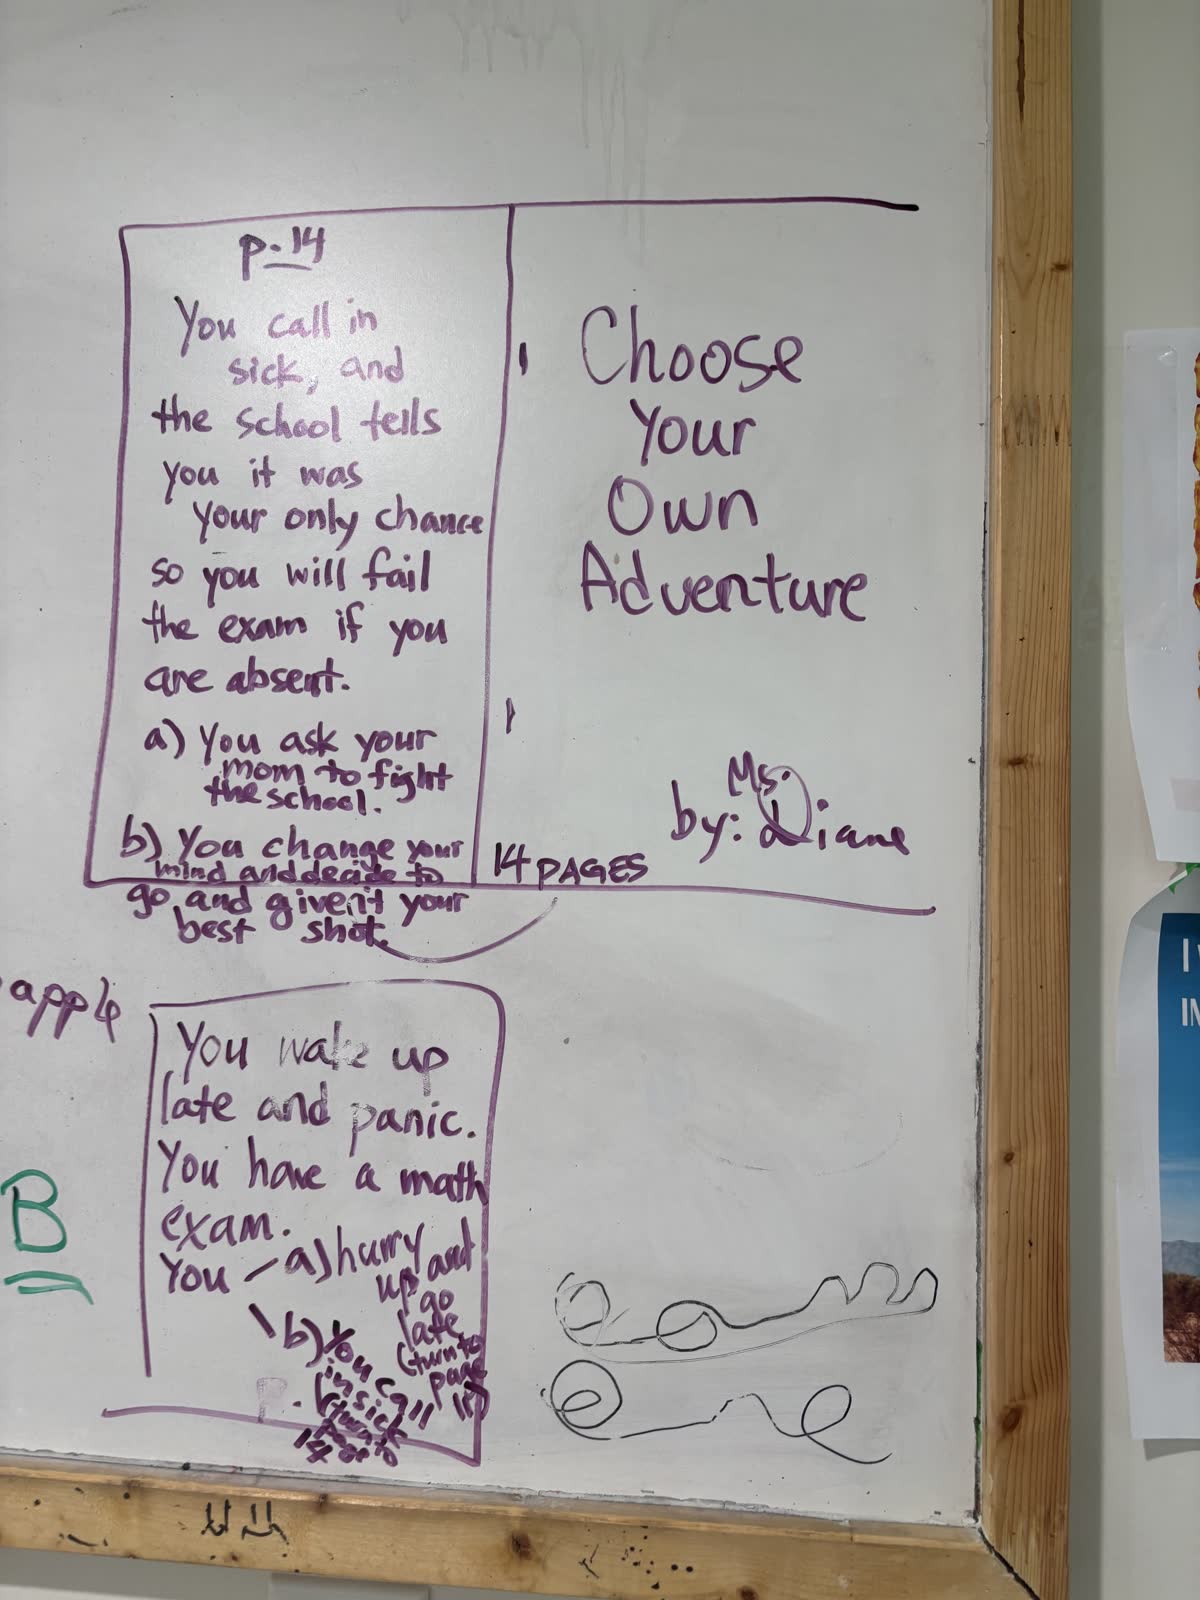 p. 14
You call in
sick, and
the school tells
you it was
your only chance
so you will fail
the exam if you
are absent.
a) You ask your
mom to fight
the school.
b) You change your
mind and decide to
go and give it your
best shot.
Choose
Your
Own
Adventure
by: Ms. Diane
14 PAGES
app
You wake up
late and panic.
You have a math
exam.
You
a) hurry
up and
go
late
(turn to
page
b) You call
in sick
(turn to
page
14
B
I